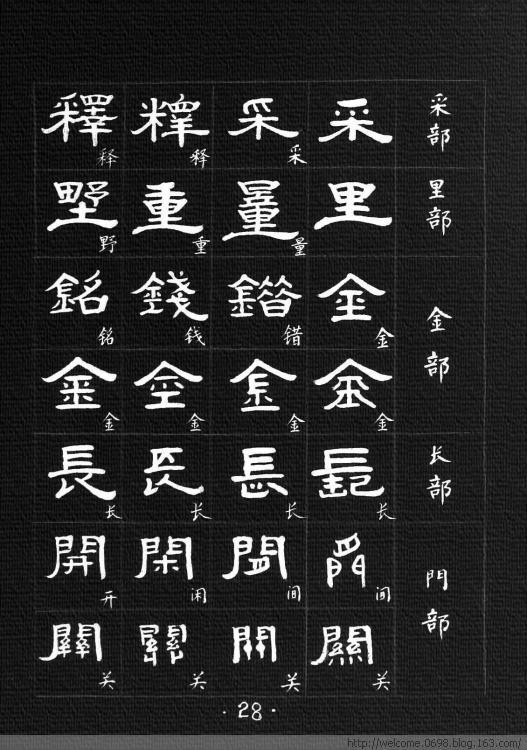 采部
采 采采 释 釋释
里部
里 量量 重重 野野
金部
金金 錯错 錢钱 銘铭
金金 金金 金金 金金
长部
長长 長长 長长 長长
門部
间 閑闲 開开
關关 關关 关 關关
·28·
http://welcome.0698.blog.163.com/